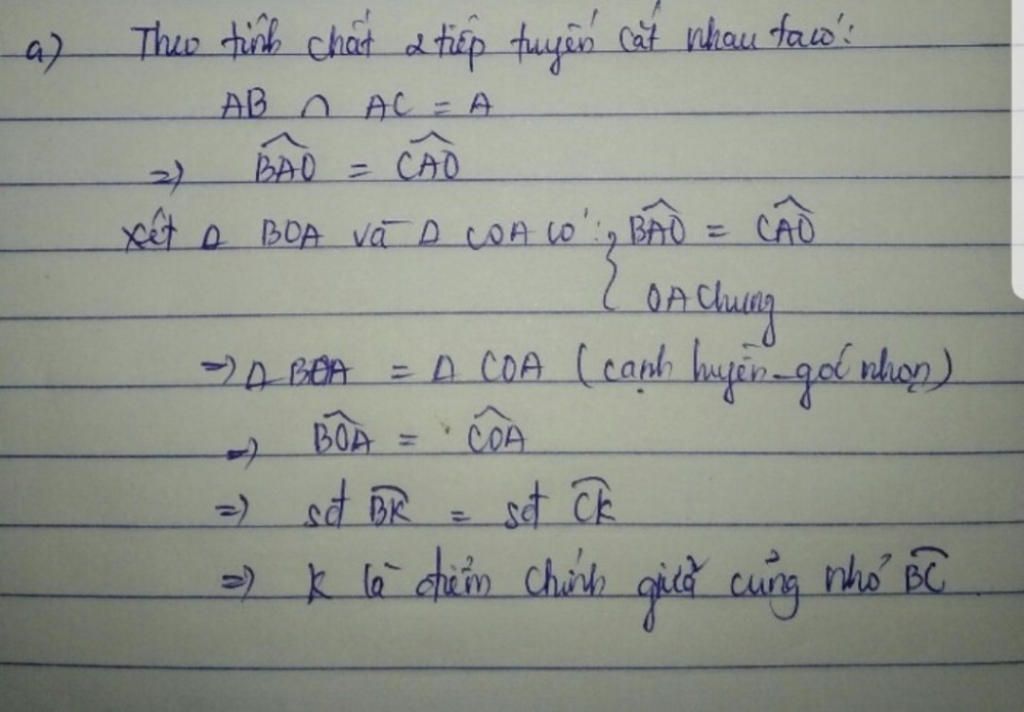 a) Theo tính chất 2 tiếp tuyến cắt nhau ta có:
AB ∩ AC = A
=> \widehat{BAO} = \widehat{CAO}
Xét Δ BOA và Δ COA có: { \widehat{BAO} = \widehat{CAO}
OA chung
=> Δ BOA = Δ COA (cạnh huyền - góc nhọn)
=> \widehat{BOA} = \widehat{COA}
=> sđ \overset{\frown}{BK} = sđ \overset{\frown}{CK}
=> K là điểm chính giữa cung nhỏ \overset{\frown}{BC}